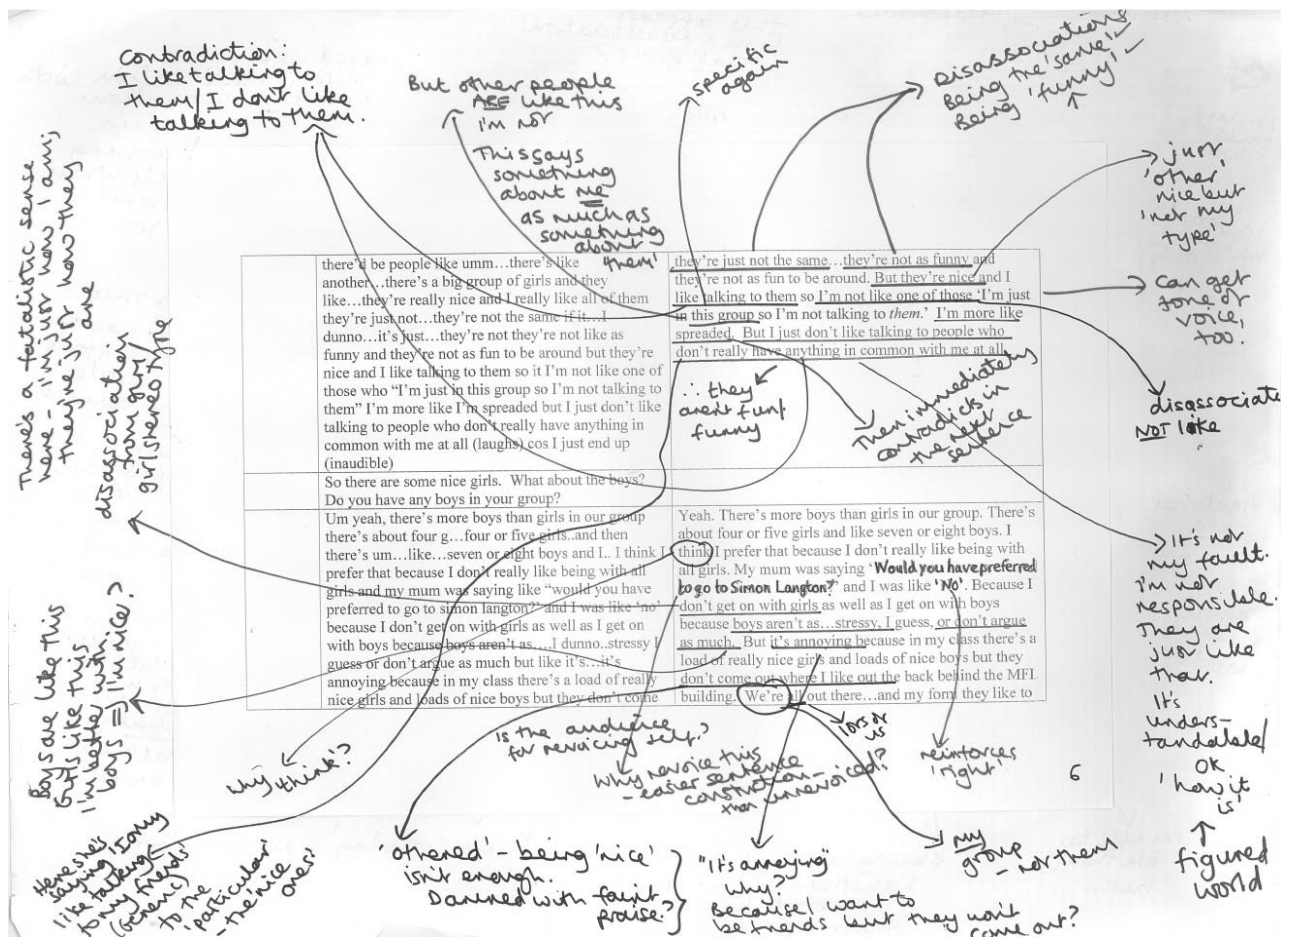 Contradiction:
I like talking to
them/I don't like
talking to them.
But other people
ARE like this
I'm not
This says
something
about me
as much as
something
about
'them'
specific
again
Disassociations
Being the 'same'
Being 'funny'
just
'other'
nice but
'not my
type'
can get
tone of
voice,
too.
disassociate
NOT like
There's a fatalistic sense
here – 'I'm just how I am;
they're just how they
are
disassociation
from girl/
girl stereotype
there'd be people like umm…there's like
another…there's a big group of girls and they
like…they're really nice and I really like all of them
they're just not…they're not the same if it…I
dunno…it's just…they're not they're not like as
funny and they're not as fun to be around but they're
nice and I like talking to them so it I'm not like one of
those who "I'm just in this group so I'm not talking to
them" I'm more like I'm spreaded but I just don't like
talking to people who don't really have anything in
common with me at all (laughs) cos I just end up
(inaudible)
they're just not the same…they're not as funny and
they're not as fun to be around. But they're nice and I
like talking to them so I'm not like one of those 'I'm just
in this group so I'm not talking to them.' I'm more like
spreaded. But I just don't like talking to people who
don't really have anything in common with me at all
∴ they
aren't fun/
funny
Then immediately
contradicts in
the next
sentence
So there are some nice girls. What about the boys?
Do you have any boys in your group?
Um yeah, there's more boys than girls in our group
there's about four g…four or five girls..and then
there's um…like…seven or eight boys and I.. I think I
prefer that because I don't really like being with all
girls and my mum was saying like "would you have
preferred to go to simon langton?" and I was like 'no'
because I don't get on with girls as well as I get on
with boys because boys aren't as….I dunno..stressy I
guess or don't argue as much but like it's…it's
annoying because in my class there's a load of really
nice girls and loads of nice boys but they don't come
Yeah. There's more boys than girls in our group. There's
about four or five girls and like seven or eight boys. I
think I prefer that because I don't really like being with
all girls. My mum was saying 'Would you have preferred
to go to Simon Langton?' and I was like 'No'. Because I
don't get on with girls as well as I get on with boys
because boys aren't as…stressy, I guess, or don't argue
as much. But it's annoying because in my class there's a
load of really nice girls and loads of nice boys but they
don't come out where I like out the back behind the MFL
building. We're all out there…and my form they like to
It's not
my fault.
I'm not
responsible.
They are
just like
that.
It's
unders-
tandable/
OK
'how it
is'
figured
world
Boys are like this
Girls like this
I'm better with
boys = I'm nice?
why 'think'?
is the audience
for revoicing self?
Why revoice this
– easier sentence
construction –
than unrevoiced?
reinforces
'right'
6
Here she's
saying 'I only
like talking
to my friends'
(generic)
to the
'particular'
– the 'nice
ones'
'othered' – being 'nice'
isn't enough.
Damned with faint
praise?
"It's annoying"
why?
Because I want to
be friends but they won't
come out?
my
group
– not them